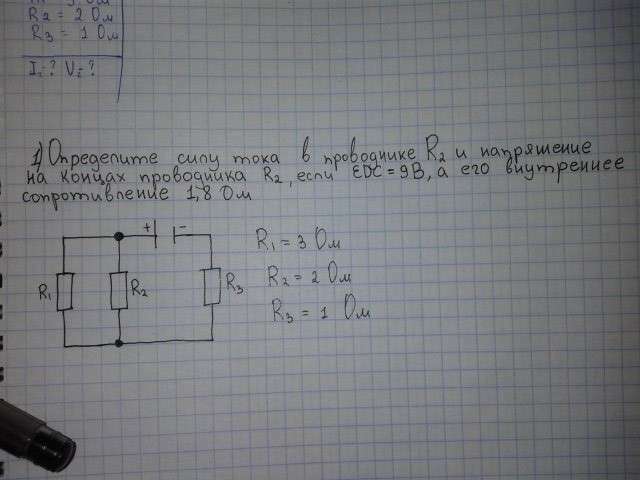 R₂ = 2 Ом
R₃ = 1 Ом
I-? V-?
1) Определите силу тока в проводнике R₂ и напряшение
на концах проводника R₂, если EDC = 9В, а его внутреннее
сопротивление 1,8 Ом
+ -
R₁ = 3 Ом
R₁ R₂ R₃ R₂ = 2 Ом
R₃ = 1 Ом